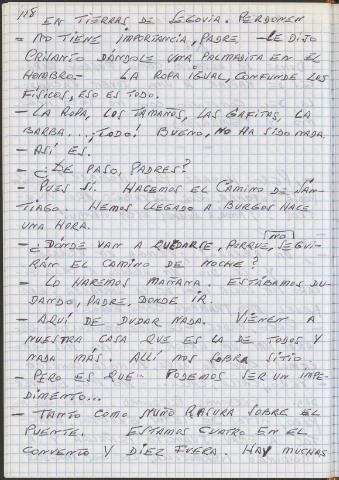 118
EN TIERRAS DE SEGOVIA. PERDONEN
- NO TIENE IMPORTANCIA, PADRE -LE DIJO
CRISANTO DÁNDOLE UNA PALMADITA EN EL
HOMBRO- LA ROPA IGUAL, CONFUNDE LOS
FÍSICOS, ESO ES TODO.
- LA ROPA, LOS TAMAÑOS, LAS GAFITAS, LA
BARBA..., ¡TODO! BUENO, NO HA SIDO NADA.
- ASÍ ES.
- ¿DE PASO, PADRES?
- PUES SÍ. HACEMOS EL CAMINO DE SAN-
TIAGO. HEMOS LLEGADO A BURGOS HACE
UNA HORA.
NO
- ¿DÓNDE VAN A QUEDARSE, PORQUE, SEGUI-
RÁN EL CAMINO DE NOCHE?
- LO HAREMOS MAÑANA. ESTÁBAMOS DU-
DANDO, PADRE, DONDE IR.
- AQUÍ DE DUDAR NADA. VIENEN A
NUESTRA CASA QUE ES LA DE TODOS Y
NADA MÁS. ALLÍ NOS SOBRA SITIO.
- PERO ES QUE... PODEMOS SER UN IMPE-
DIMENTO...
- TANTO COMO NUÑO RASURA SOBRE EL
PUENTE. ESTAMOS CUATRO EN EL
CONVENTO Y DIEZ FUERA. HAY MUCHAS